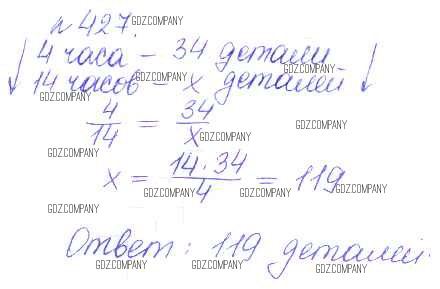 № 427. GDZ.COMPANY
↓ 4 часа – 34 детали ↓
GDZ.COMPANY
14 часов – x деталей
GDZ.COMPANY GDZ.COMPANY
4/14 = 34/x
GDZ.COMPANY GDZ.COMPANY
GDZ.COMPANY
x = 14·34/4 = 119
GDZ.COMPANY GDZ.COMPANY GDZ.COMPANY
GDZ.COMPANY
Ответ: 119 деталей.
GDZ.COMPANY GDZ.COMPANY GDZ.COMPANY